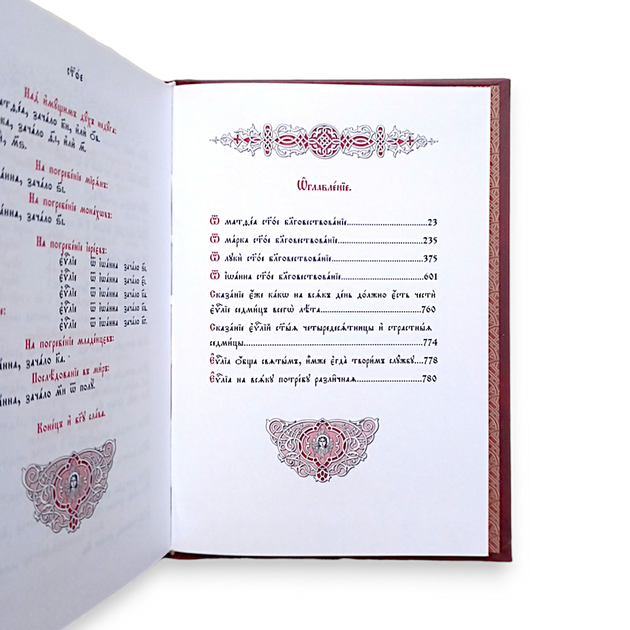 ст҃о́е
Над̾ и҆мꙋ́щимъ дꙋ́хъ недꙋ́га:
зача́ло
На погребе́нїе мїрѧ́нъ:
а́нна, зача́ло
На погребе́нїе мона́хѡвъ:
а́нна, зача́ло
На погребе́нїе і҆ере́ѡвъ:
є҆ѵⷢ҇лїе ѿ і҆ѡа́нна зача́ло
є҆ѵⷢ҇лїе ѿ і҆ѡа́нна зача́ло
є҆ѵⷢ҇лїе ѿ і҆ѡа́нна зача́ло
є҆ѵⷢ҇лїе ѿ і҆ѡа́нна зача́ло
є҆ѵⷢ҇лїе ѿ і҆ѡа́нна зача́ло
На погребе́нїе младе́нцєвъ:
а́нна, зача́ло к҃а.
Послѣ́дованїе въ ми́ръ:
а́нна, зача́ло м҃и ѿ полꙋ̀.
Коне́цъ и҆ бг҃ꙋ сла́ва.
Ѡ҆главле́нїе.
Ѿ матѳе́а ст҃о́е бл҃говѣствова́нїе.....23
Ѿ ма́рка ст҃о́е бл҃говѣствова́нїе.....235
Ѿ лꙋкѝ ст҃о́е бл҃говѣствова́нїе.....375
Ѿ і҆ѡа́нна ст҃о́е бл҃говѣствова́нїе.....601
Сказа́нїе є҆́же ка́кѡ на всѧ́къ де́нь до́лжно є҆́сть честѝ
є҆ѵⷢ҇лїе седми́цъ всегѡ̀ лѣ́та.....760
Сказа́нїе є҆ѵⷢ҇лїй ст҃ы́ѧ четыредесѧ́тницы и҆ стра́стныѧ
седми́цы.....774
Є҆ѵⷢ҇лїа ѻ҆́бща свѧты̑мъ, и҆̀мже є҆гда̀ твори́мъ слꙋ́жбꙋ.....778
Є҆ѵⷢ҇лїа на всѧ́кꙋ потре́бꙋ разли̑чнаѧ.....780